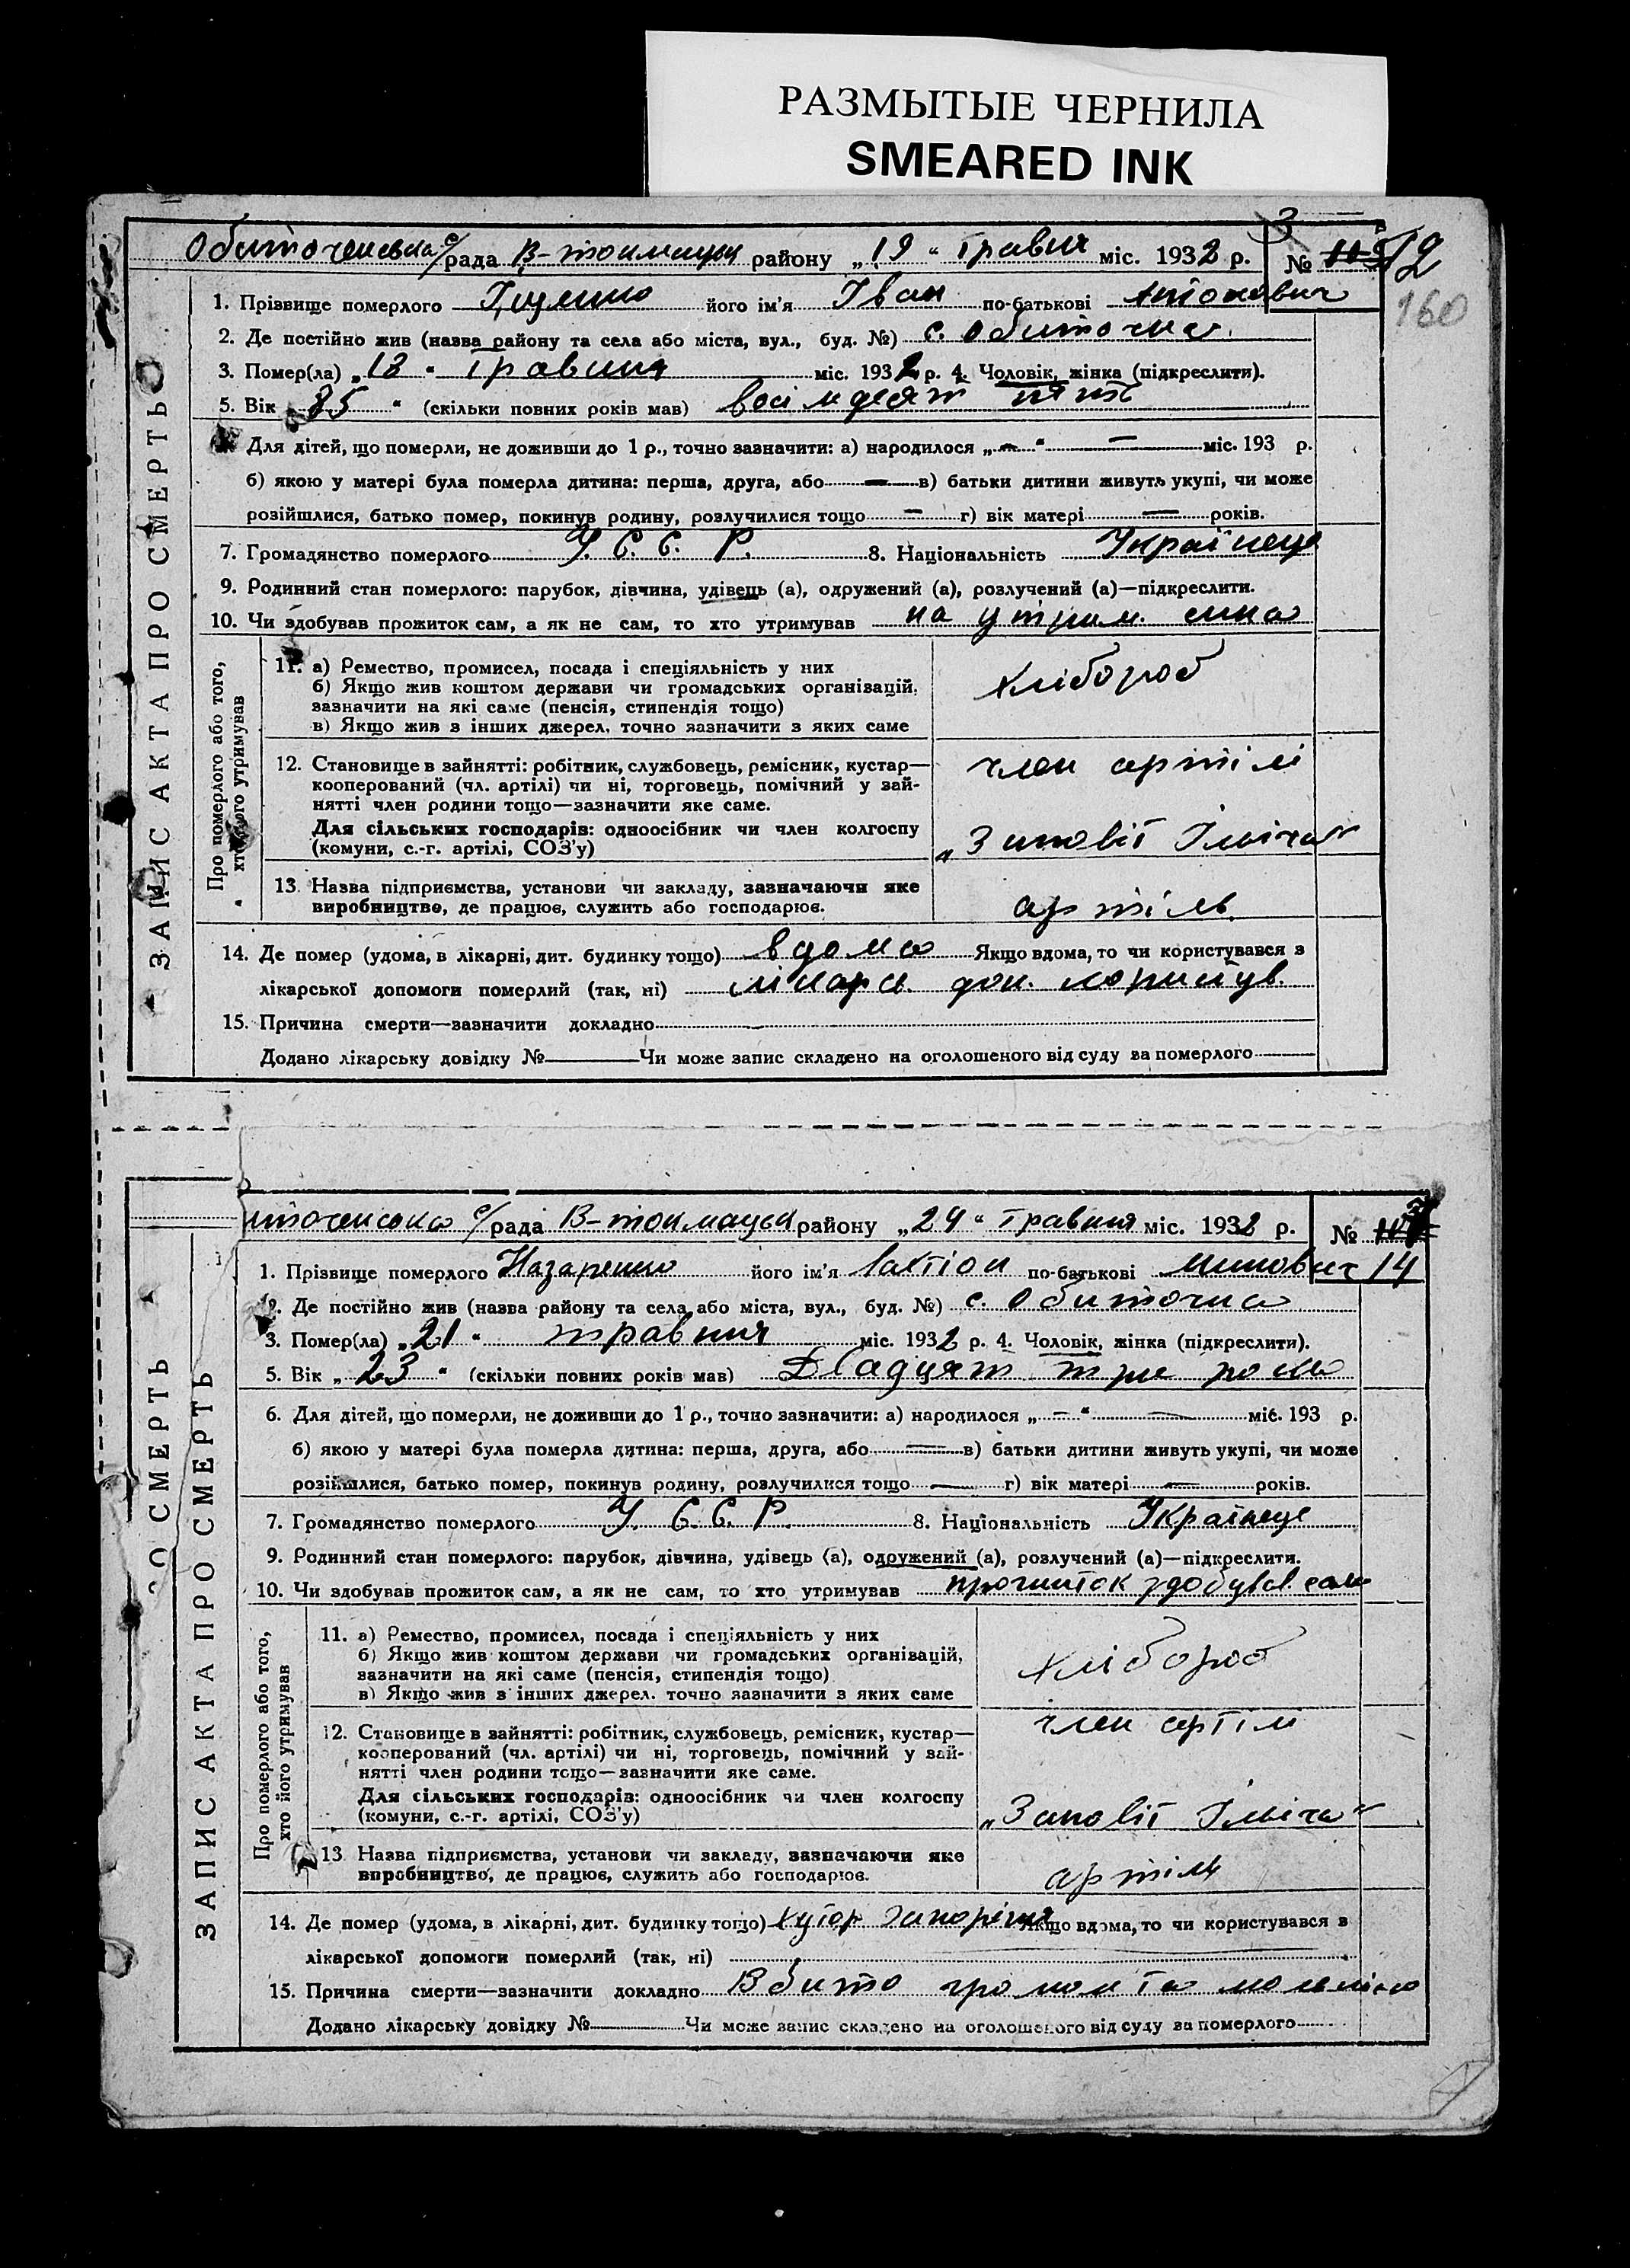 РАЗМЫТЫЕ ЧЕРНИЛА
SMEARED INK
3
Обиточенська с/рада В-токмацьк району „19“ травня міс. 1932 р. № 12
160
1. Прізвище померлого його ім'я Іван по-батькові Антонович
2. Де постійно жив (назва району та села або міста, вул., буд. №) с. Обиточна
3. Помер(ла) „18“ травня міс. 1932 р. 4. Чоловік, жінка (підкреслити).
5. Вік „85“ (скільки повних років мав) Вісімдесят пять
Для дітей, що померли, не доживши до 1 р., точно зазначити: а) народилося „—“ — міс. 193 р.
б) якою у матері була померла дитина: перша, друга, або — в) батьки дитини живуть укупі, чи може
розійшлися, батько помер, покинув родину, розлучилися тощо — г) вік матері — років.
7. Громадянство померлого У. С. С. Р. 8. Національність Українець
9. Родинний стан померлого: парубок, дівчина, удівець (а), одружений (а), розлучений (а)—підкреслити.
10. Чи здобував прожиток сам, а як не сам, то хто утримував на утрим. сина
ЗАПИС АКТА ПРО СМЕРТЬ
Про померлого або того, хто його утримував
11. а) Ремество, промисел, посада і спеціяльність у них
б) Якщо жив коштом держави чи громадських організацій,
зазначити на які саме (пенсія, стипендія тощо)
в) Якщо жив з інших джерел, точно зазначити з яких саме
хлібороб
12. Становище в зайнятті: робітник, службовець, ремісник, кустар—
кооперований (чл. артілі) чи ні, торговець, помічний у зай-
нятті член родини тощо—зазначити яке саме.
Для сільських господарів: одноосібник чи член колгоспу
(комуни, с.-г. артілі, СОЗ'у)
член артілі
„Заповіт Ілліча“
13. Назва підприємства, установи чи закладу, зазначаючи яке
виробництво, де працює, служить або господарює.
артіль
14. Де помер (удома, в лікарні, дит. будинку тощо) вдома Якщо вдома, то чи користувався з
лікарської допомоги померлий (так, ні) лікарсь. доп. користув.
15. Причина смерти—зазначити докладно
Додано лікарську довідку № Чи може запис складено на оголошеного від суду за померлого
иточенська с/рада В-токмацьк району „24“ травня міс. 1932 р. №
1. Прізвище померлого Назаренко його ім'я Лактіон по-батькові 14
2. Де постійно жив (назва району та села або міста, вул., буд. №) с. Обиточна
3. Помер(ла) „21“ травня міс. 1932 р. 4. Чоловік, жінка (підкреслити).
5. Вік „23“ (скільки повних років мав) Двадцять три роки
6. Для дітей, що померли, не доживши до 1 р., точно зазначити: а) народилося „—“ — міс. 193 р.
б) якою у матері була померла дитина: перша, друга, або — в) батьки дитини живуть укупі, чи може
розійшлися, батько помер, покинув родину, розлучилися тощо — г) вік матері — років.
7. Громадянство померлого У. С. С. Р. 8. Національність Українець
9. Родинний стан померлого: парубок, дівчина, удівець (а), одружений (а), розлучений (а)—підкреслити.
10. Чи здобував прожиток сам, а як не сам, то хто утримував прожиток здобував сам
О СМЕРТЬ
ЗАПИС АКТА ПРО СМЕРТЬ
Про померлого або того, хто його утримував
11. а) Ремество, промисел, посада і спеціяльність у них
б) Якщо жив коштом держави чи громадських організацій,
зазначити на які саме (пенсія, стипендія тощо)
в) Якщо жив з інших джерел. точно зазначити з яких саме
хлібороб
12. Становище в зайнятті: робітник, службовець, ремісник, кустар—
кооперований (чл. артілі) чи ні, торговець, помічний у зай-
нятті член родини тощо—зазначити яке саме.
Для сільських господарів: одноосібник чи член колгоспу
(комуни, с.-г. артілі, СОЗ'у)
член артілі
„Заповіт Ілліча“
13 Назва підприємства, установи чи закладу, зазначаючи яке
виробництво, де працює, служить або господарює.
артіль
14. Де помер (удома, в лікарні, дит. будинку тощо) хутор Запоріжжя Якщо вдома, то чи користувався з
лікарської допомоги померлий (так, ні)
15. Причина смерти—зазначити докладно Вбито громом та
Додано лікарську довідку № Чи може запис складено на оголошеного від суду за померлого